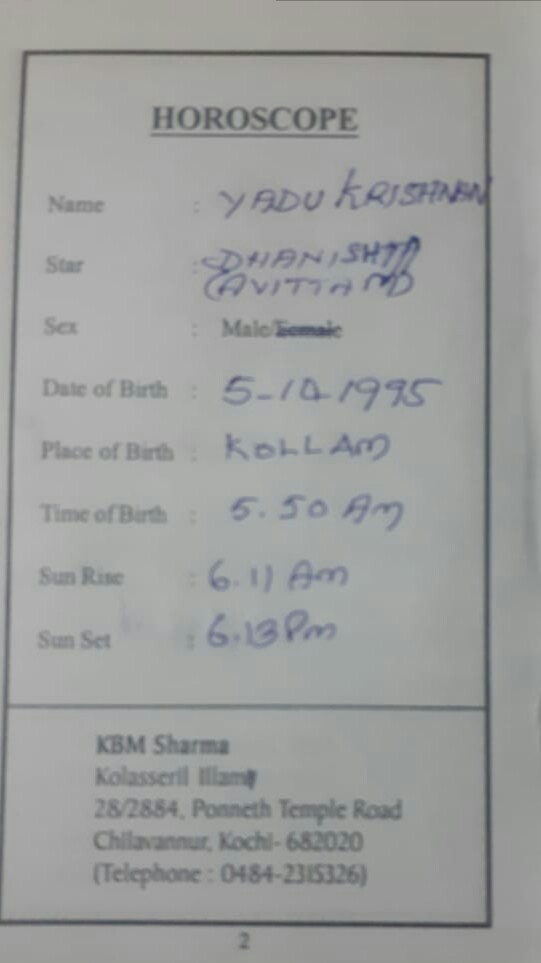 HOROSCOPE
Name : YADU KRISHNAN
Star : DHANISHTA
(AVITTAM)
Sex : Male/Female
Date of Birth : 5-10-1995
Place of Birth : KOLLAM
Time of Birth : 5.50 Am
Sun Rise : 6.11 Am
Sun Set : 6.13 Pm
KBM Sharma
Kolasseril Illam
28/2884, Ponneth Temple Road
Chilavannur, Kochi- 682020
(Telephone : 0484-2315326)
2